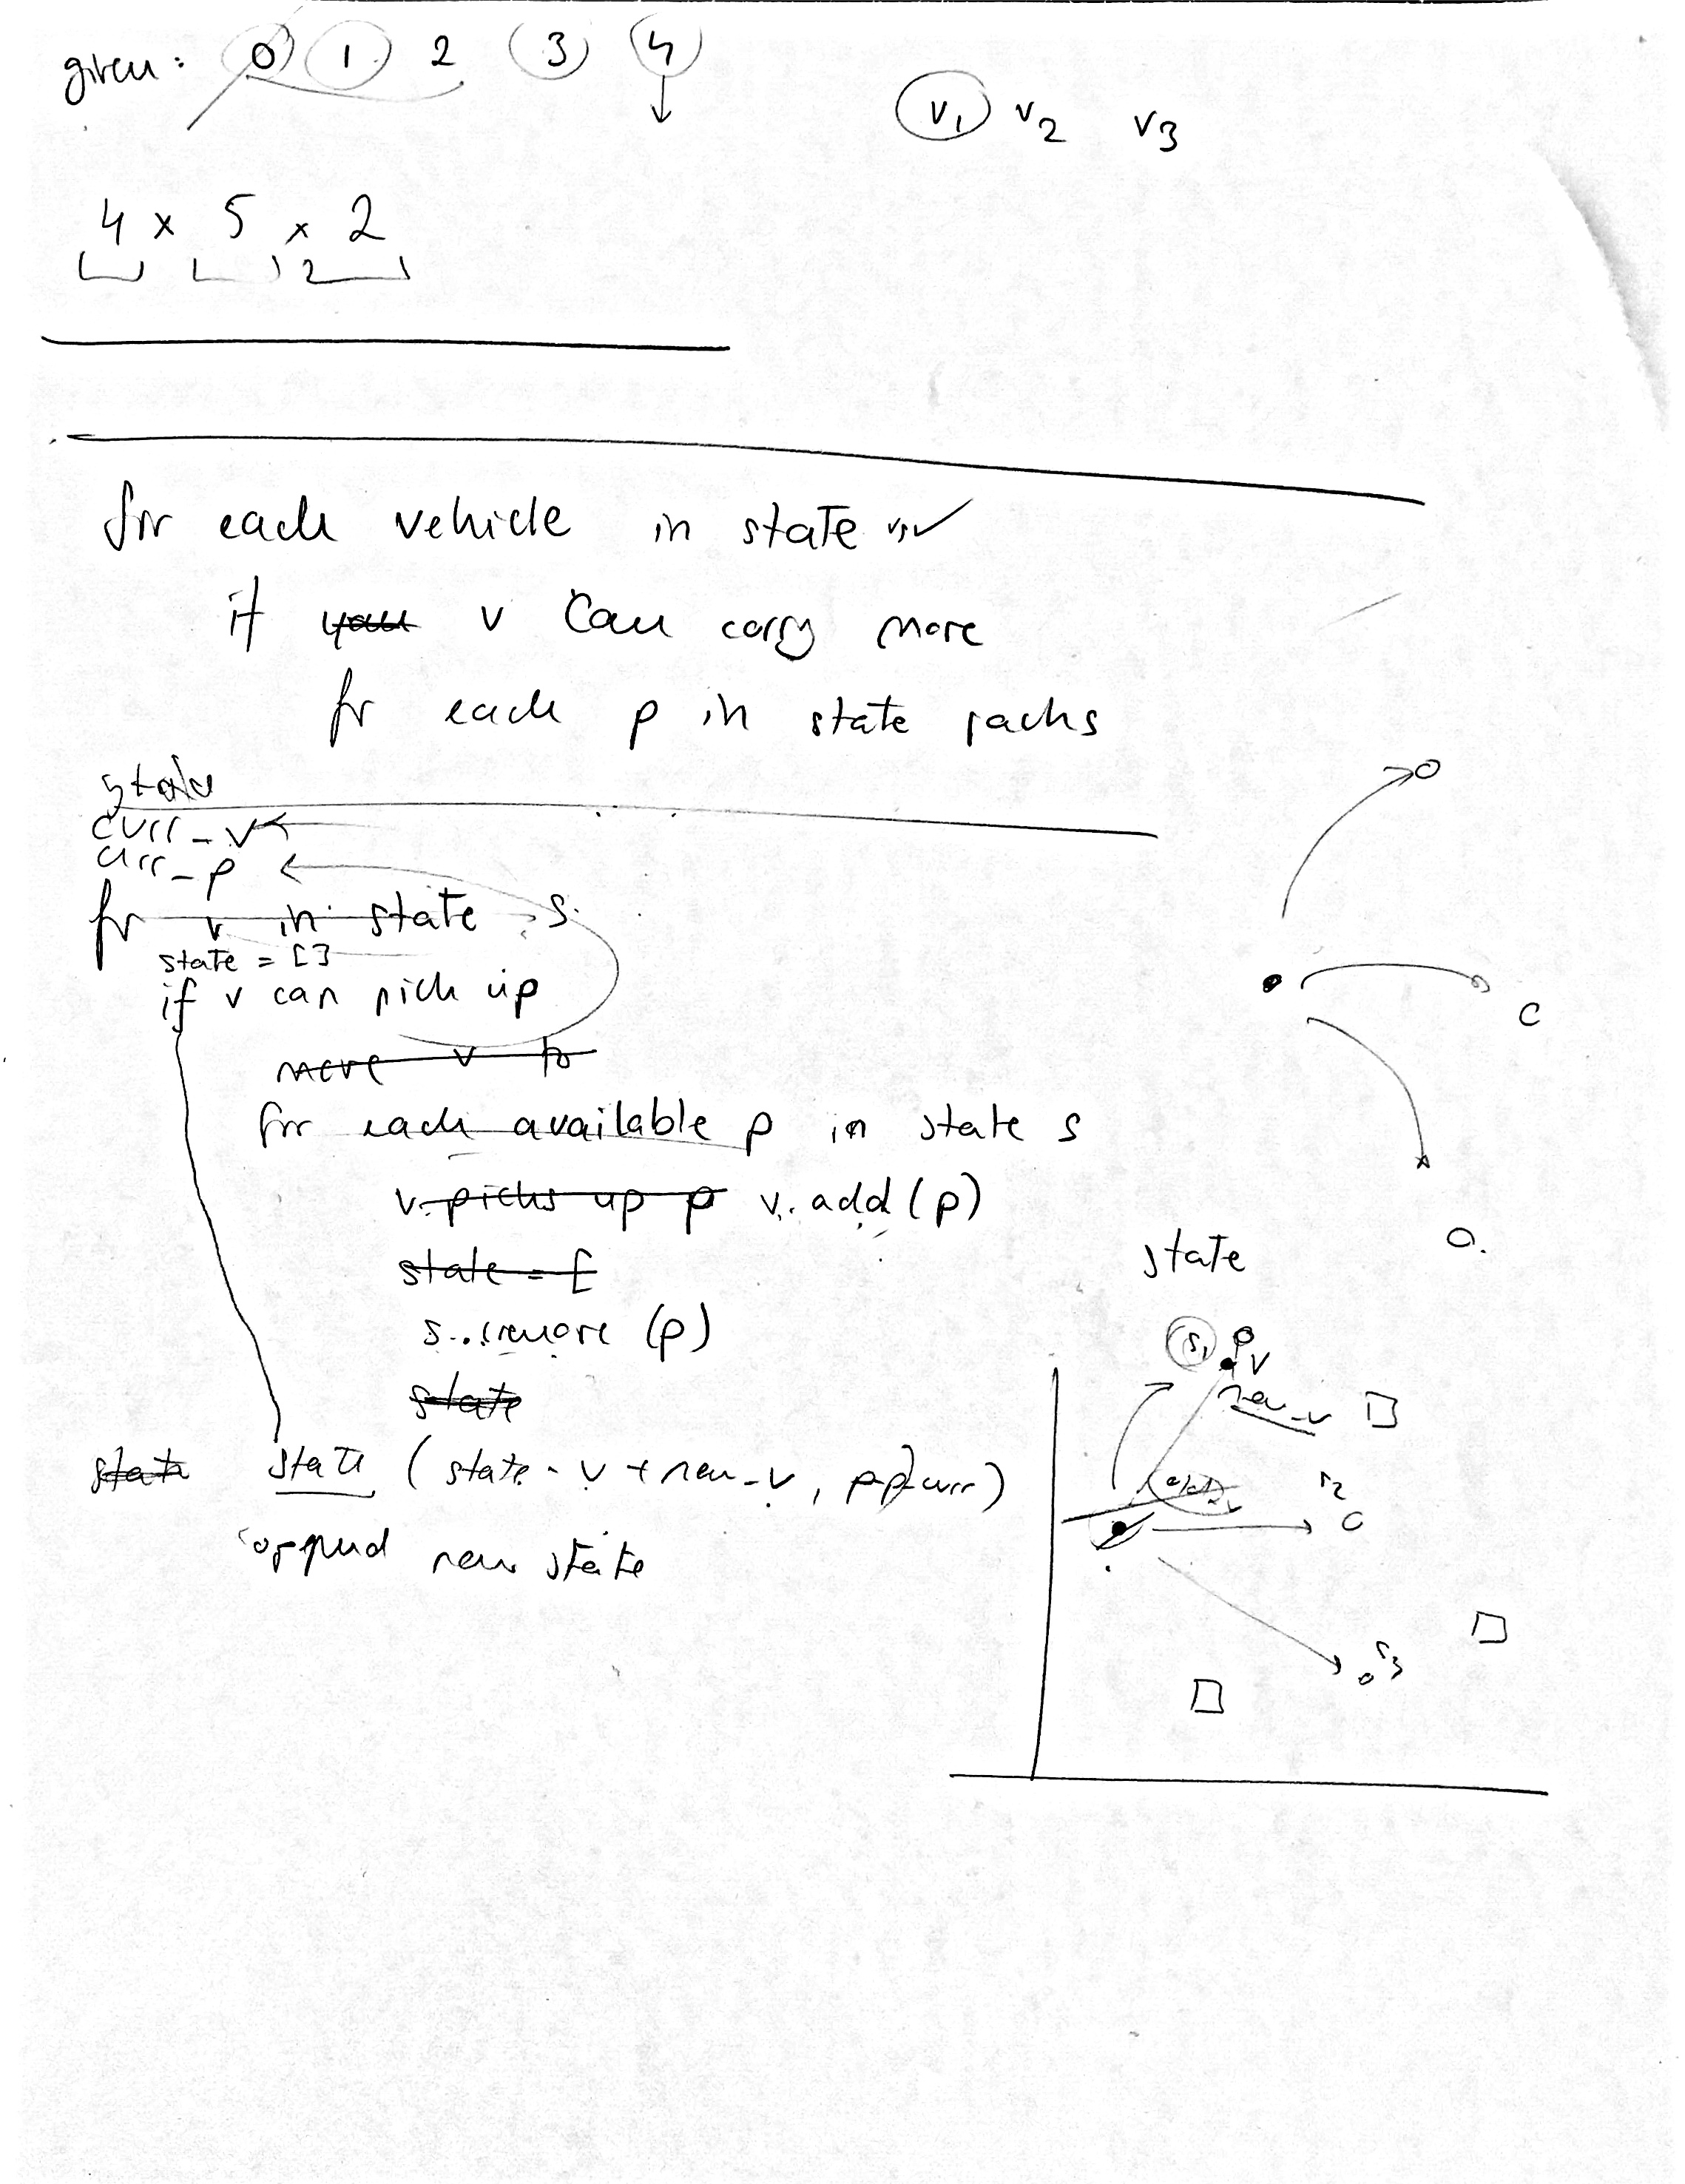 given: 0 1 2 3 4
v1 v2 v3
4 x 5 x 2
2
for each vehicle in state
if v can carry more
for each p in state packs
state
curr_v
curr_p
for v in state s
state = []
if v can pick up
move v to
for each available p in state s
v. picks up p v. add (p)
state = [
s..remove (p)
state
state state (state - v + new_v, p-p_curr)
append new state
state
s1 p
v
new_v
old_v
s2
s3